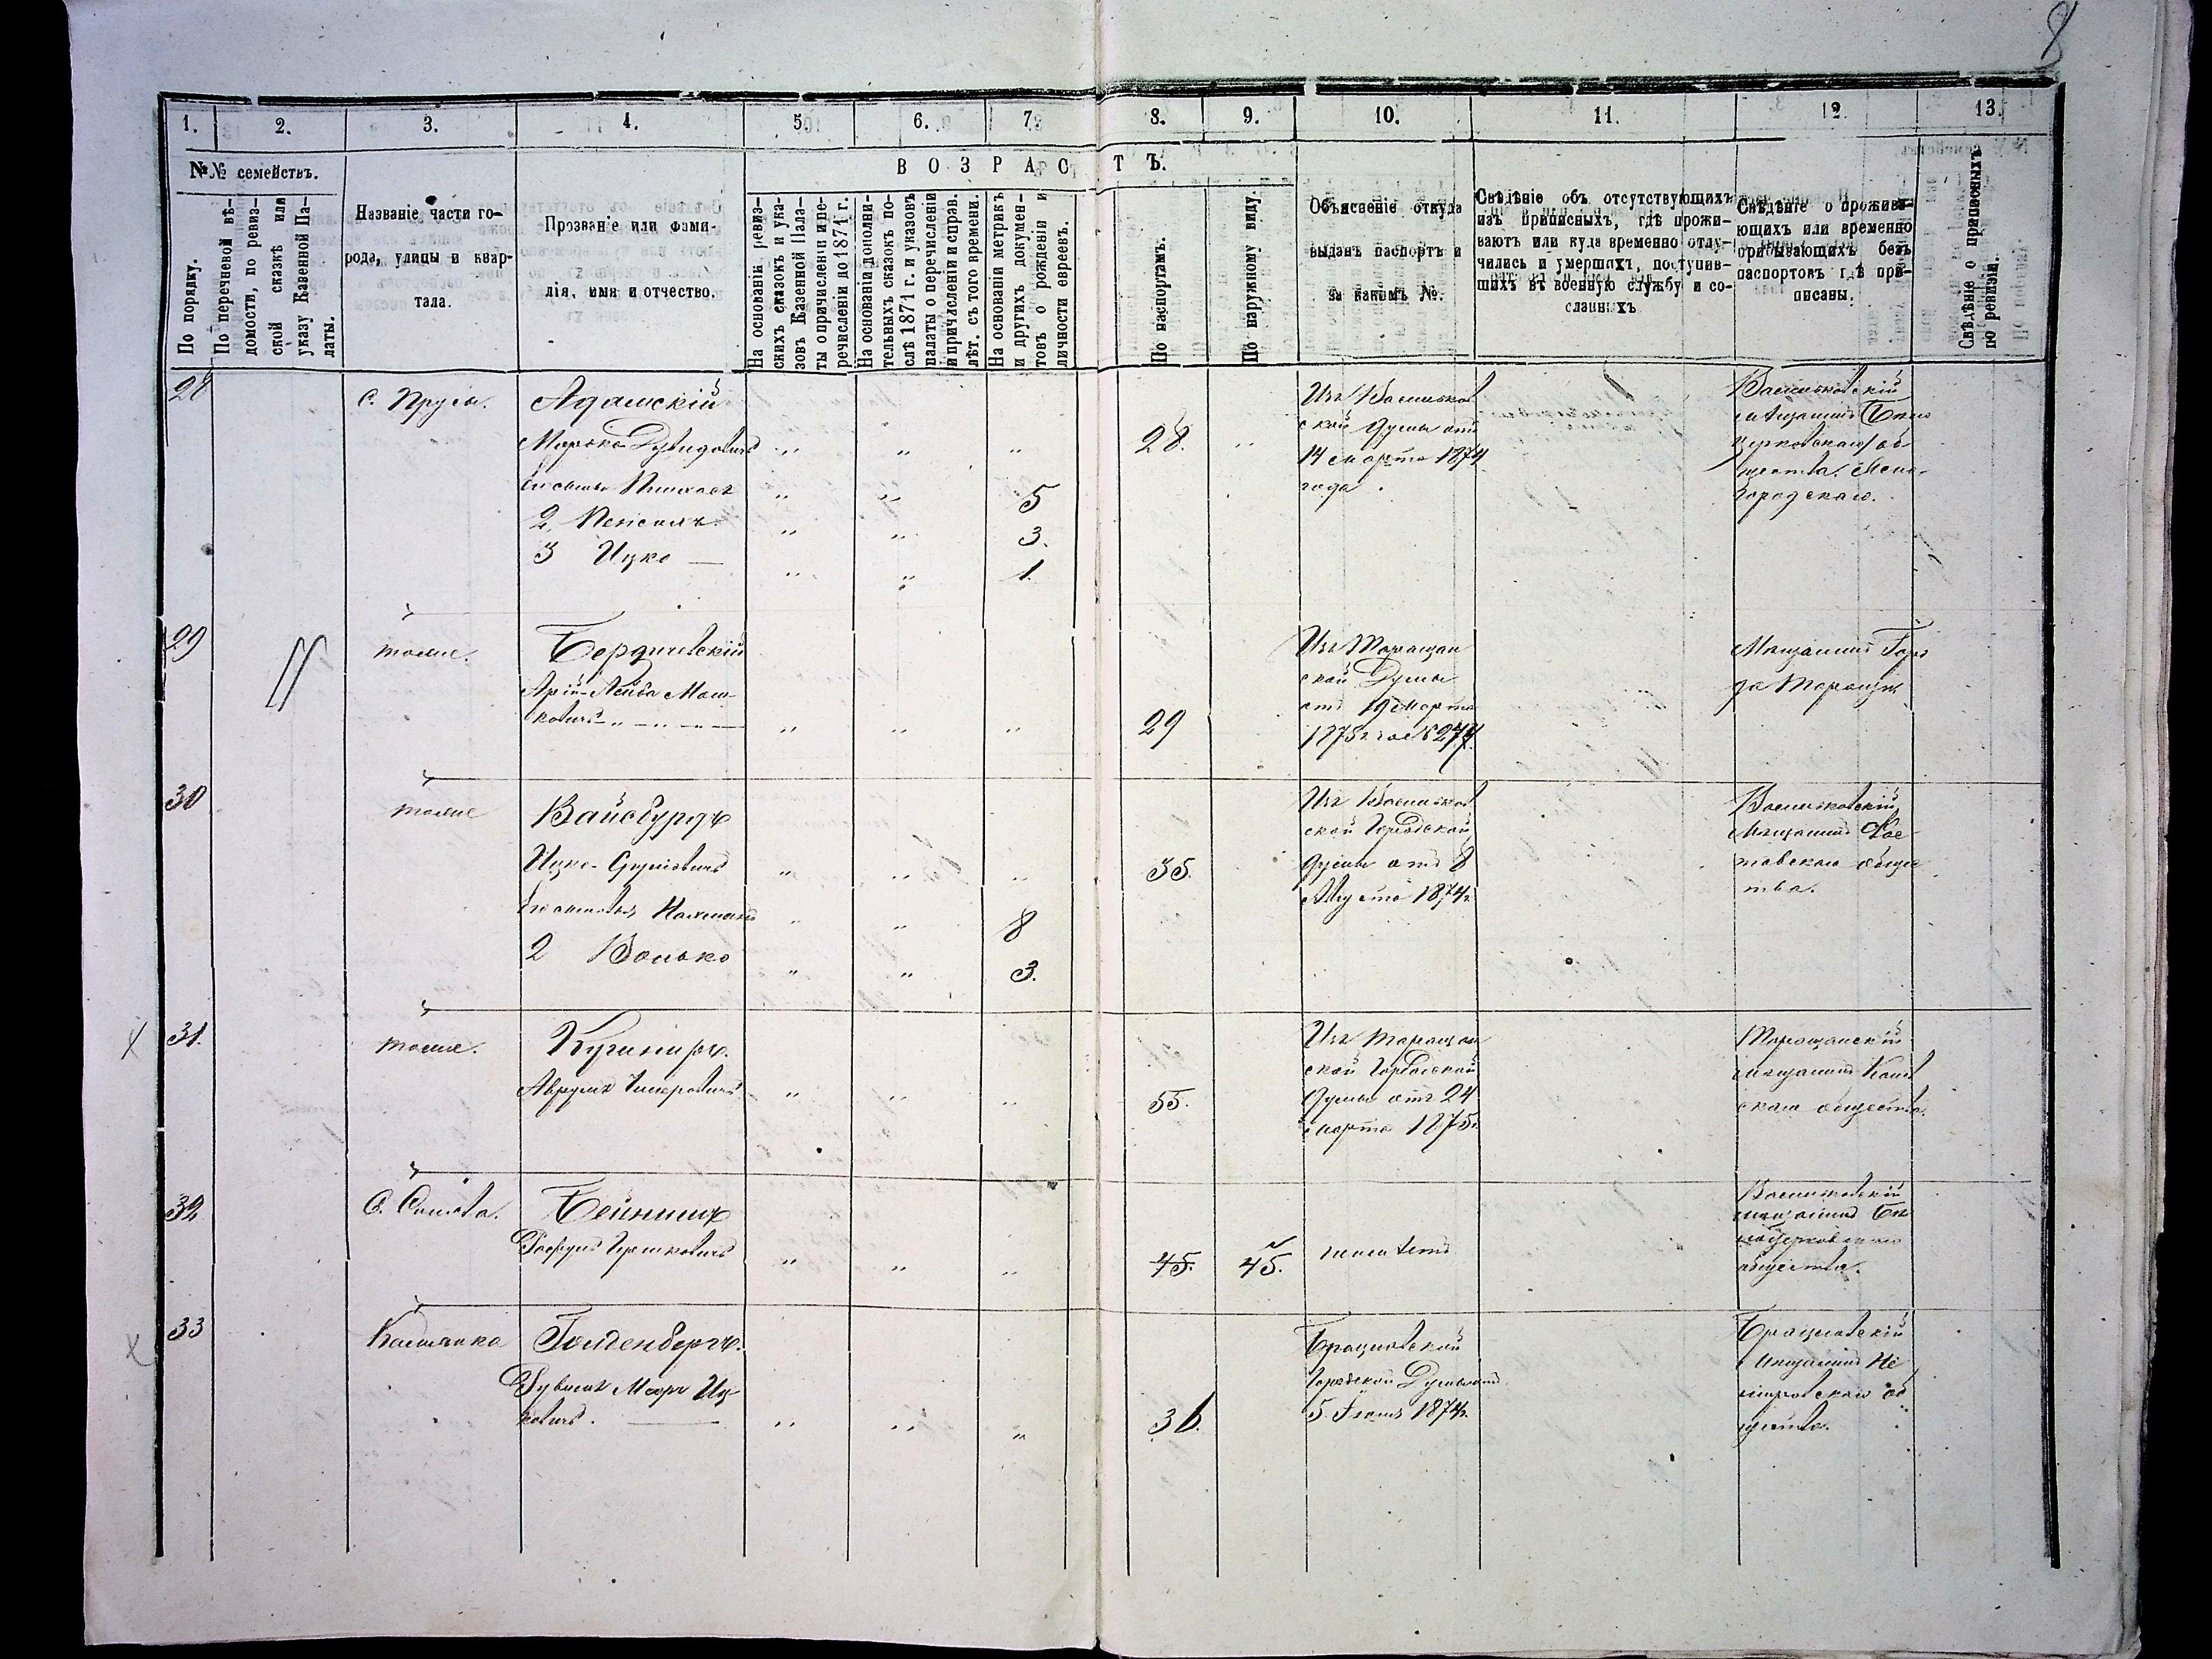 8
1. 2. 3. 4. 5. 6. 7. 8. 9. 10. 11. 12. 13.
№№ семействъ.
По порядку.
По перечневой вѣ-
домости, по ревиз-
ской сказкѣ или
указу Казенной Па-
латы.
Названіе части го-
рода, улицы и квар-
тала.
Прозваніе или фами-
лія, имя и отчество.
ВОЗРАСТЪ.
На основаніи ревиз-
скихъ сказокъ и ука-
зовъ Казенной Пала-
ты о причисленіи и пе-
речисленіи до 1871 г.
На основаніи дополни-
тельныхъ сказокъ по-
слѣ 1871 г. и указовъ
палаты о перечисленіи
и причисленіи и справ.
лѣт. съ того времени.
На основаніи метрикъ
и другихъ докумен-
товъ о рожденіи и
личности евреевъ.
По паспортамъ.
По наружному виду.
Объясненіе откуда
выданъ паспортъ и
за какимъ №.
Свѣдѣніе объ отсутствующихъ
изъ приписныхъ, гдѣ прожи-
ваютъ или куда временно отлу-
чились и умершихъ, поступив-
шихъ въ военную службу и со-
сланныхъ
Свѣдѣніе о прожива-
ющихъ или временно
пребывающихъ безъ
паспортовъ гдѣ при-
писаны.
Свѣдѣніе о приписныхъ
по ревизіи.
28
С. Прусы.
Адамскій
Мошко Дувидовичъ
28.
Пинхасъ
5
2
3.
3 Ицко
1
Изъ Васильков
ской Думы отъ
14 марта 1874
года.
Васильковскій
мѣщанинъ Бѣло
церковскаго об-
щества.
29
тоже.
Бердичевскій
Арій-Лейба Мош-
ковичъ
29
Изъ Таращан
ской Думы
отъ 19 Марта
1875 г.
Мѣщанинъ Горо
да Таращи
30
тоже
Вайсбурдъ
Ицко-Сруліовичъ
35.
8
2 Волько
3.
Изъ Васильков
ской Городской
Думы отъ 8
Августа 1874 г.
Васильковскій
Мѣщанинъ Фас-
товскаго общес
тва.
31.
тоже.
Кушниръ.
Аврумъ
55.
Изъ Таращан
ской Городской
Думы отъ 24
марта 1875 г.
Таращанскій
мѣщанинъ
скаго общества.
32
Бейнишъ
Гершковичъ
45.
45.
неимѣетъ
Васильковскій
мѣщанинъ Бѣ
лоцерковскаго
общества.
33
Кашланка
Гольденбергъ.
Дувидъ Мееръ Иц-
ковичъ.
36.
Брацлавской
Городской Думы отъ
5 1874 г.
Брацлавскій
Мѣщанинъ Не
мировскаго об
щества.